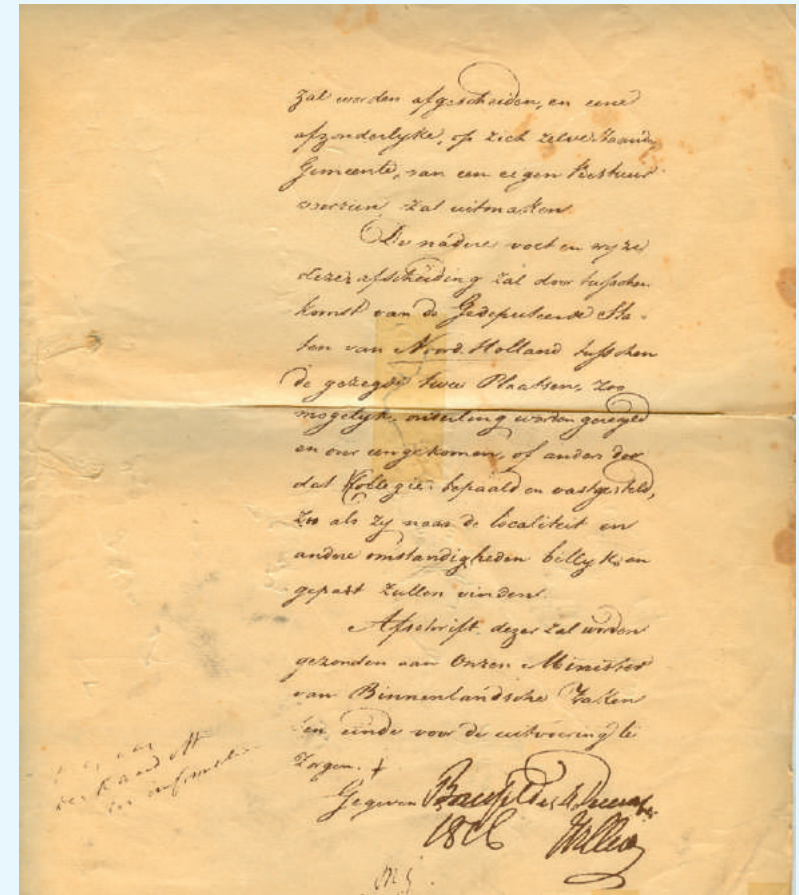 zal worden afgescheiden, en eene
afzonderlyke, op zich zelve staande
Gemeente, van een eigen bestuur
voorzien, zal uitmaken
De nadere voet en wyze
dezer afscheiding zal door tusschen
komst van de Gedeputeerde Sta-
ten van Noord-Holland tusschen
de gezegde twee Plaatsen, zoo
mogelyk, onderling worden geregeld
en over een gekomen, of anders door
dat Kollegie bepaald en vastgesteld,
zoo als zy naar de localiteit en
andere omstandigheden billyk en
gepast zullen vinden.
Afschrift dezer zal worden
gezonden aan Onzen Minister
van Binnenlandsche Zaken
ten einde voor de uitvoering te
zorgen.
Gegeven
1816 Willem